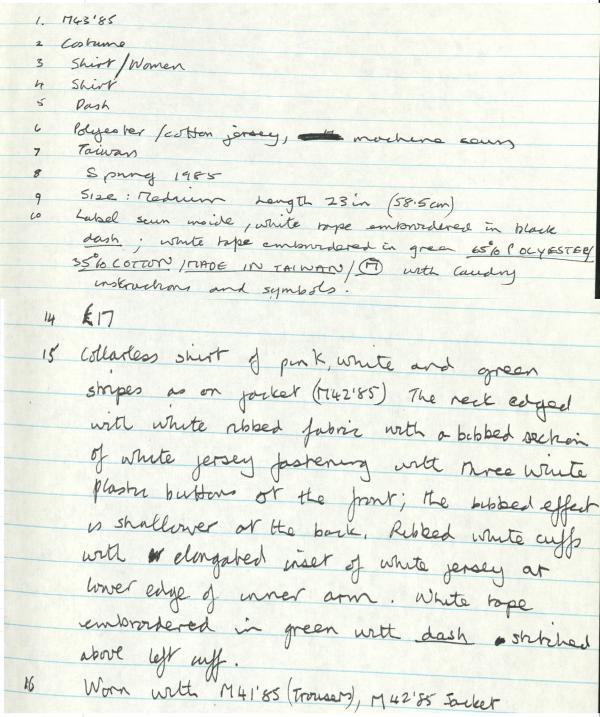 1. M43'85
2 Costume
3 Shirt/Women
4 Shirt
5 Dash
6 Polyester/cotton jersey, machine sewn
7 Taiwan
8 Spring 1985
9 Size: Medium Length 23in (58.5cm)
10 Label sewn inside, white tape embroidered in black
dash; white tape embroidered in green 65% POLYESTER/
35% COTTON/MADE IN TAIWAN/Ⓜ with laundry
instructions and symbols.
14 £17
15 Collarless shirt of pink, white and green
stripes as on jacket (M42'85) The neck edged
with white ribbed fabric with a bibbed section
of white jersey fastening with three white
plastic buttons at the front; the bibbed effect
is shallower at the back. Ribbed white cuffs
with elongated inset of white jersey at
lower edge of inner arm. White tape
embroidered in green with dash stitched
above left cuff.
16 Worn with M41'85 (Trousers), M42'85 Jacket